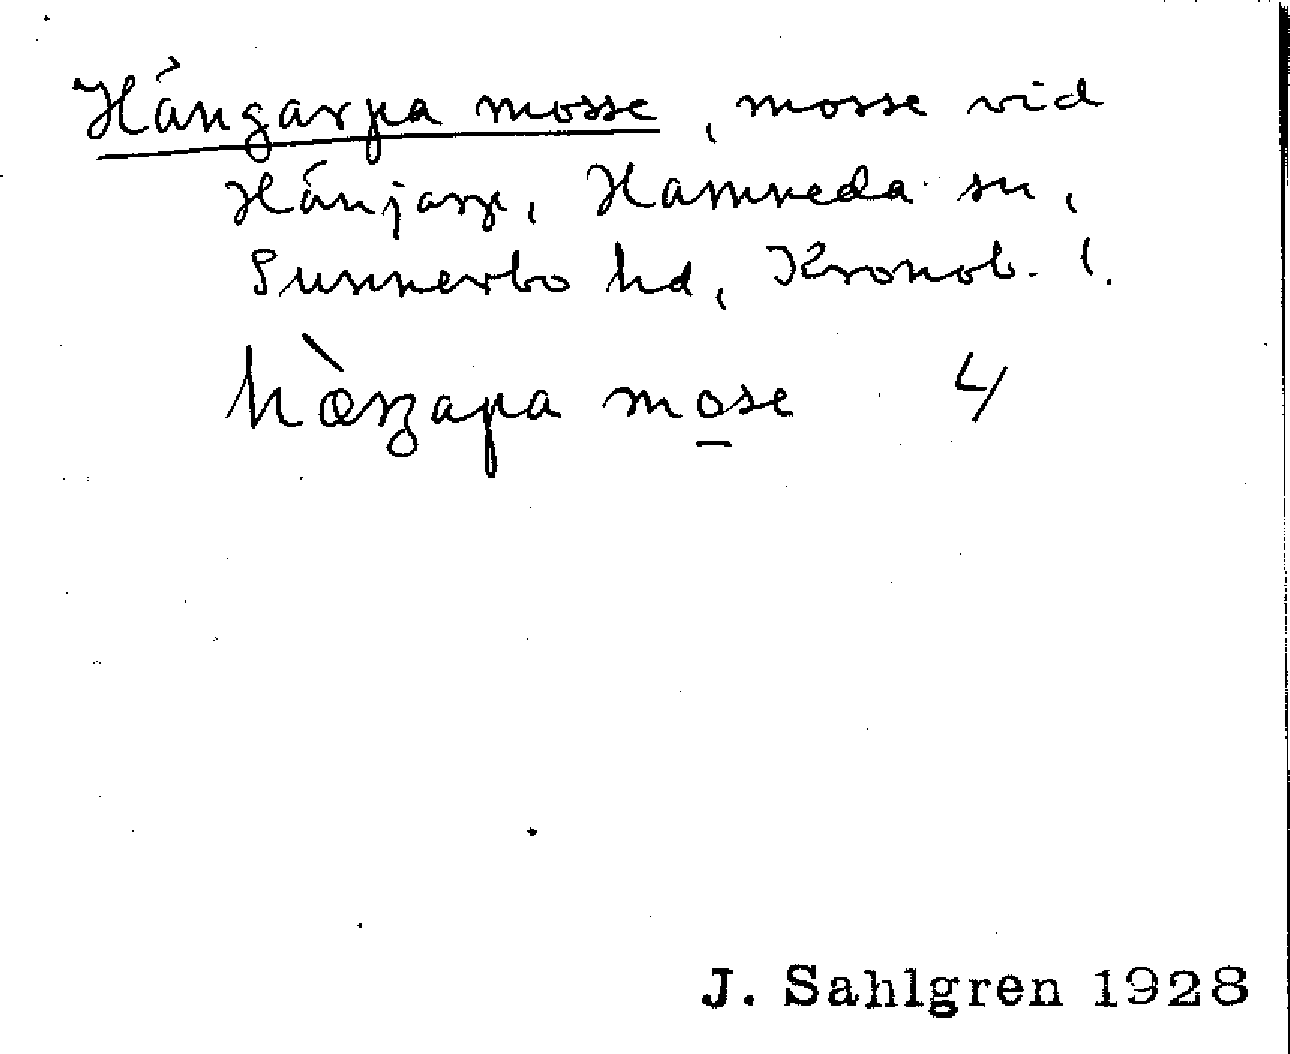 Hängarpa mosse, mosse vid
Hänjarp, Hamneda sn,
Sunnerbo hd, Kronob. l.
hæ̀ŋapa mo̲se 4
J. Sahlgren 1928